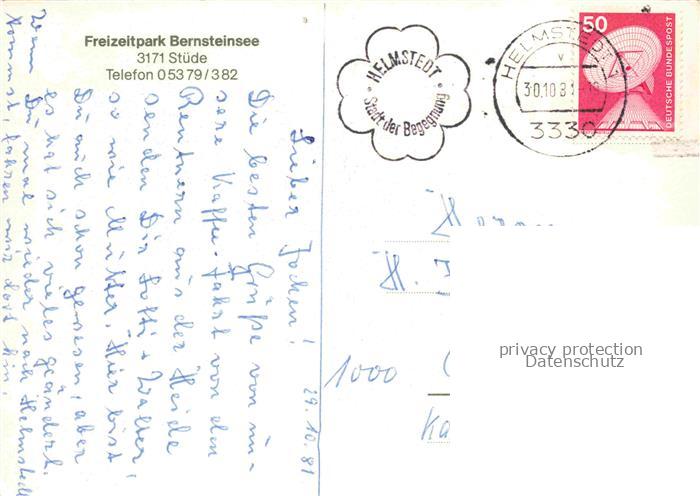 Freizeitpark Bernsteinsee
3171 Stüde
Telefon 0 53 79 / 3 82
HELMSTEDT
Stadt der Begegnung
HELMSTEDT 1
v
30.10.81
3330
50
DEUTSCHE BUNDESPOST
29.10.81
Lieber Jochen!
Die besten Grüße von un-
sere Kaffee-Fahrt von den
Rentnern aus der Heide
senden Dir Lotti + Walter
so wie Mutter. Hier bist
Du auch schon gewesen, aber
es hat sich vieles geändert.
Wenn Du mal wieder nach Helmstedt
kommst, fahren wir dort hin.
Herrn
H.
1000
privacy protection
Datenschutz